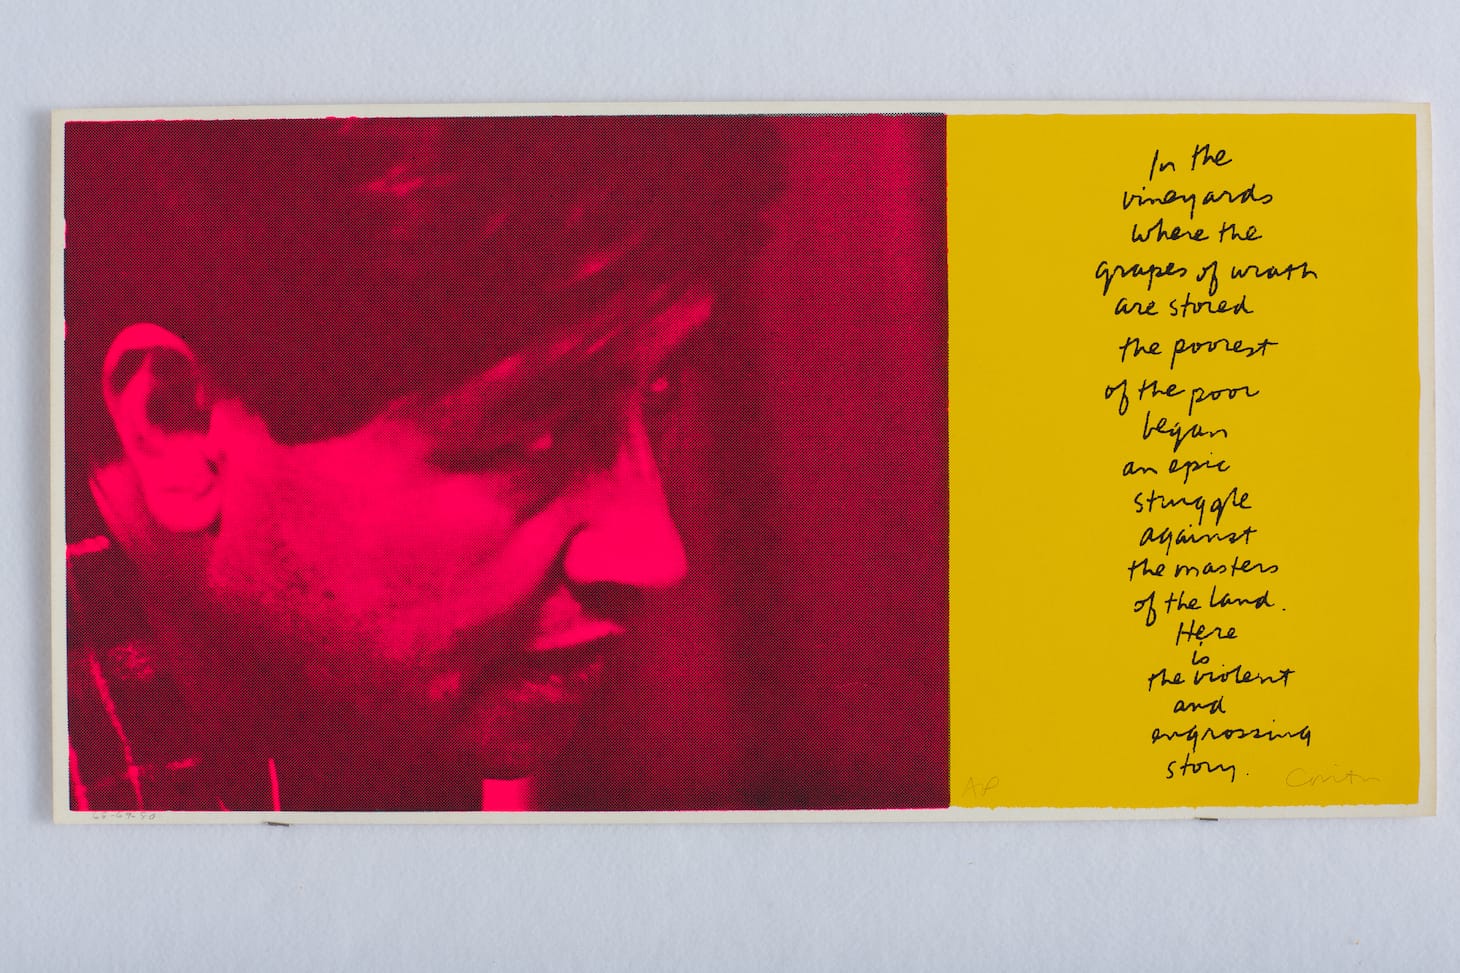 In the
vineyards
where the
grapes of wrath
are stored
the poorest
of the poor
began
an epic
struggle
against
the masters
of the land.
Here
is
the violent
and
engrossing
story.
AP
Corita
68-69-50